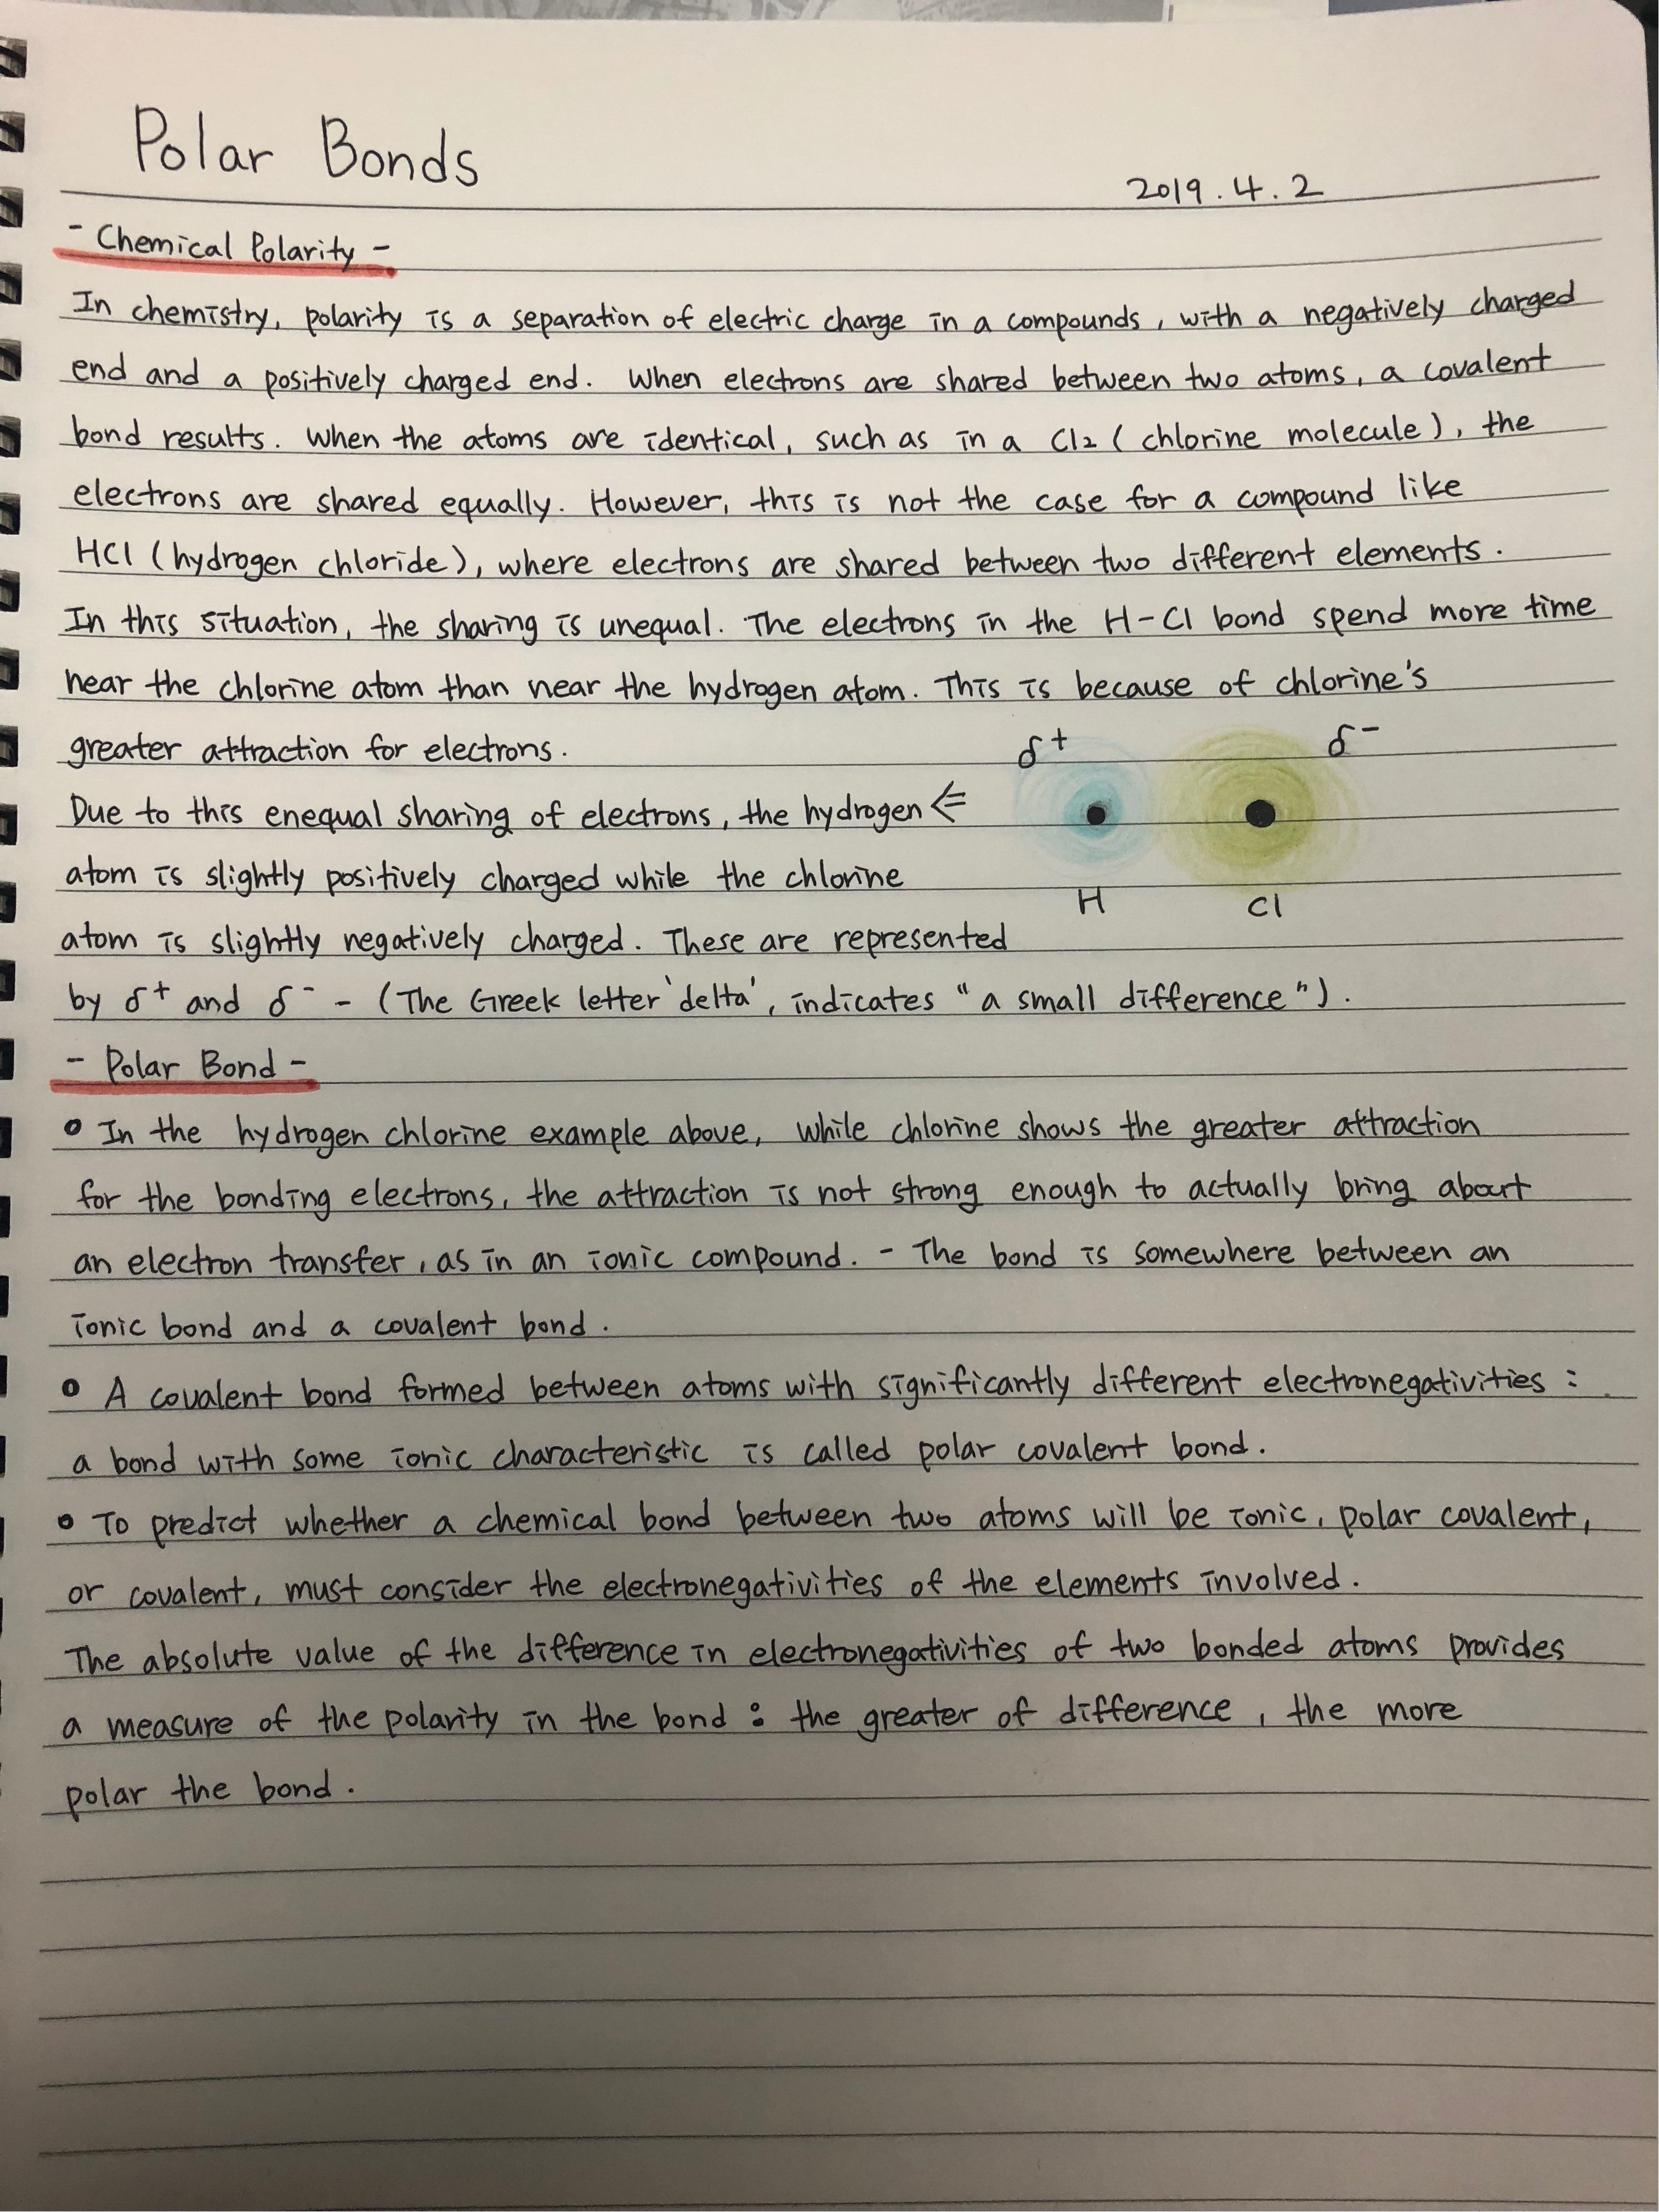 Polar Bonds
2019.4.2
- Chemical Polarity -
In chemistry, polarity is a separation of electric charge in a compounds, with a negatively charged
end and a positively charged end. When electrons are shared between two atoms, a covalent
bond results. When the atoms are identical, such as in a Cl2 (chlorine molecule), the
electrons are shared equally. However, this is not the case for a compound like
HCl (hydrogen chloride), where electrons are shared between two different elements.
In this situation, the sharing is unequal. The electrons in the H-Cl bond spend more time
near the chlorine atom than near the hydrogen atom. This is because of chlorine's
greater attraction for electrons.
δ+ δ-
Due to this enequal sharing of electrons, the hydrogen ⇐
atom is slightly positively charged while the chlorine
H Cl
atom is slightly negatively charged. These are represented
by δ+ and δ- - (The Greek letter 'delta', indicates "a small difference").
- Polar Bond -
• In the hydrogen chlorine example above, while chlorine shows the greater attraction
for the bonding electrons, the attraction is not strong enough to actually bring about
an electron transfer, as in an ionic compound. - The bond is somewhere between an
ionic bond and a covalent bond.
• A covalent bond formed between atoms with significantly different electronegativities :
a bond with some ionic characteristic is called polar covalent bond.
• To predict whether a chemical bond between two atoms will be ionic, polar covalent,
or covalent, must consider the electronegativities of the elements involved.
The absolute value of the difference in electronegativities of two bonded atoms provides
a measure of the polarity in the bond : the greater of difference, the more
polar the bond.